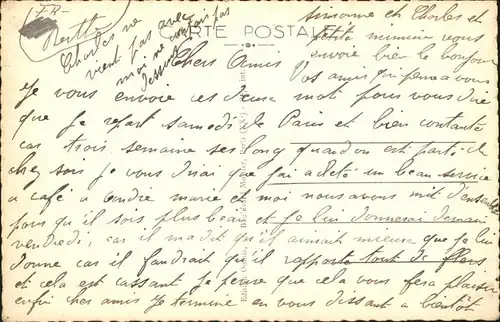 Charles ne
vient pas avec
moi ne
dessus
CARTE POSTALE
Simonne et Charles et
petite mimine vous
envoie bien le bonjour
Vos amis qui pense a vous
Chers Amis
Je vous envoie ces deux mot pour vous dire
que je repart samedi de Paris et bien contente
car trois semaine ses long quand on est parti de
chez soi je vous dirai que j'ai acheté un beau service
a café a andre marie et moi nous avons mit d'ensemble
pour qu'il sois plus beau et je lui donnerai demain
vendredi, car il m'a dit qu'il aimait mieux que je lui
donne car il faudrait qu'il rapporte tout de
et cela est cassant je pense que cela vous fera plaisir
enfin cher amis je termine en vous dissant a bientôt